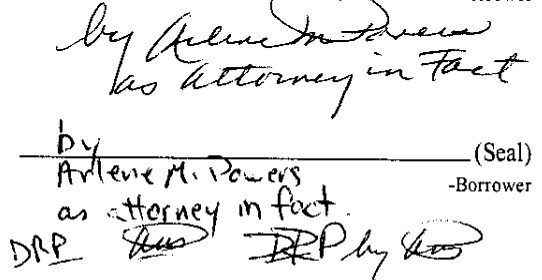 by Arlene M Powers
as Attorney in Fact
by
(Seal)
Arlene M. Powers
-Borrower
as attorney in fact
DRP DRP by